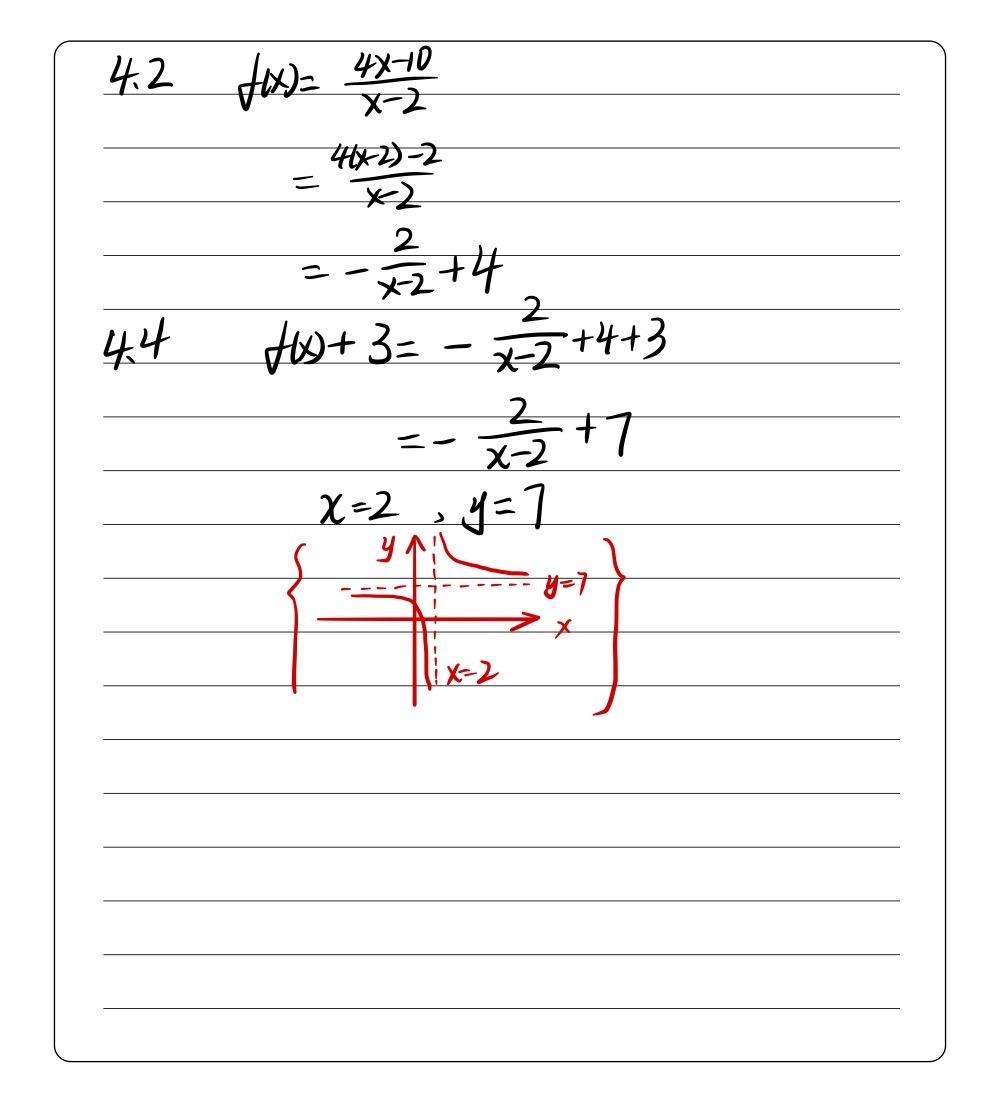 4.2 f(x)= \frac{4x-10}{x-2}
= \frac{4(x-2)-2}{x-2}
= -\frac{2}{x-2}+4
4.4 f(x)+3= -\frac{2}{x-2}+4+3
= -\frac{2}{x-2}+7
x=2 , y=7
y
y=7
x
x=2